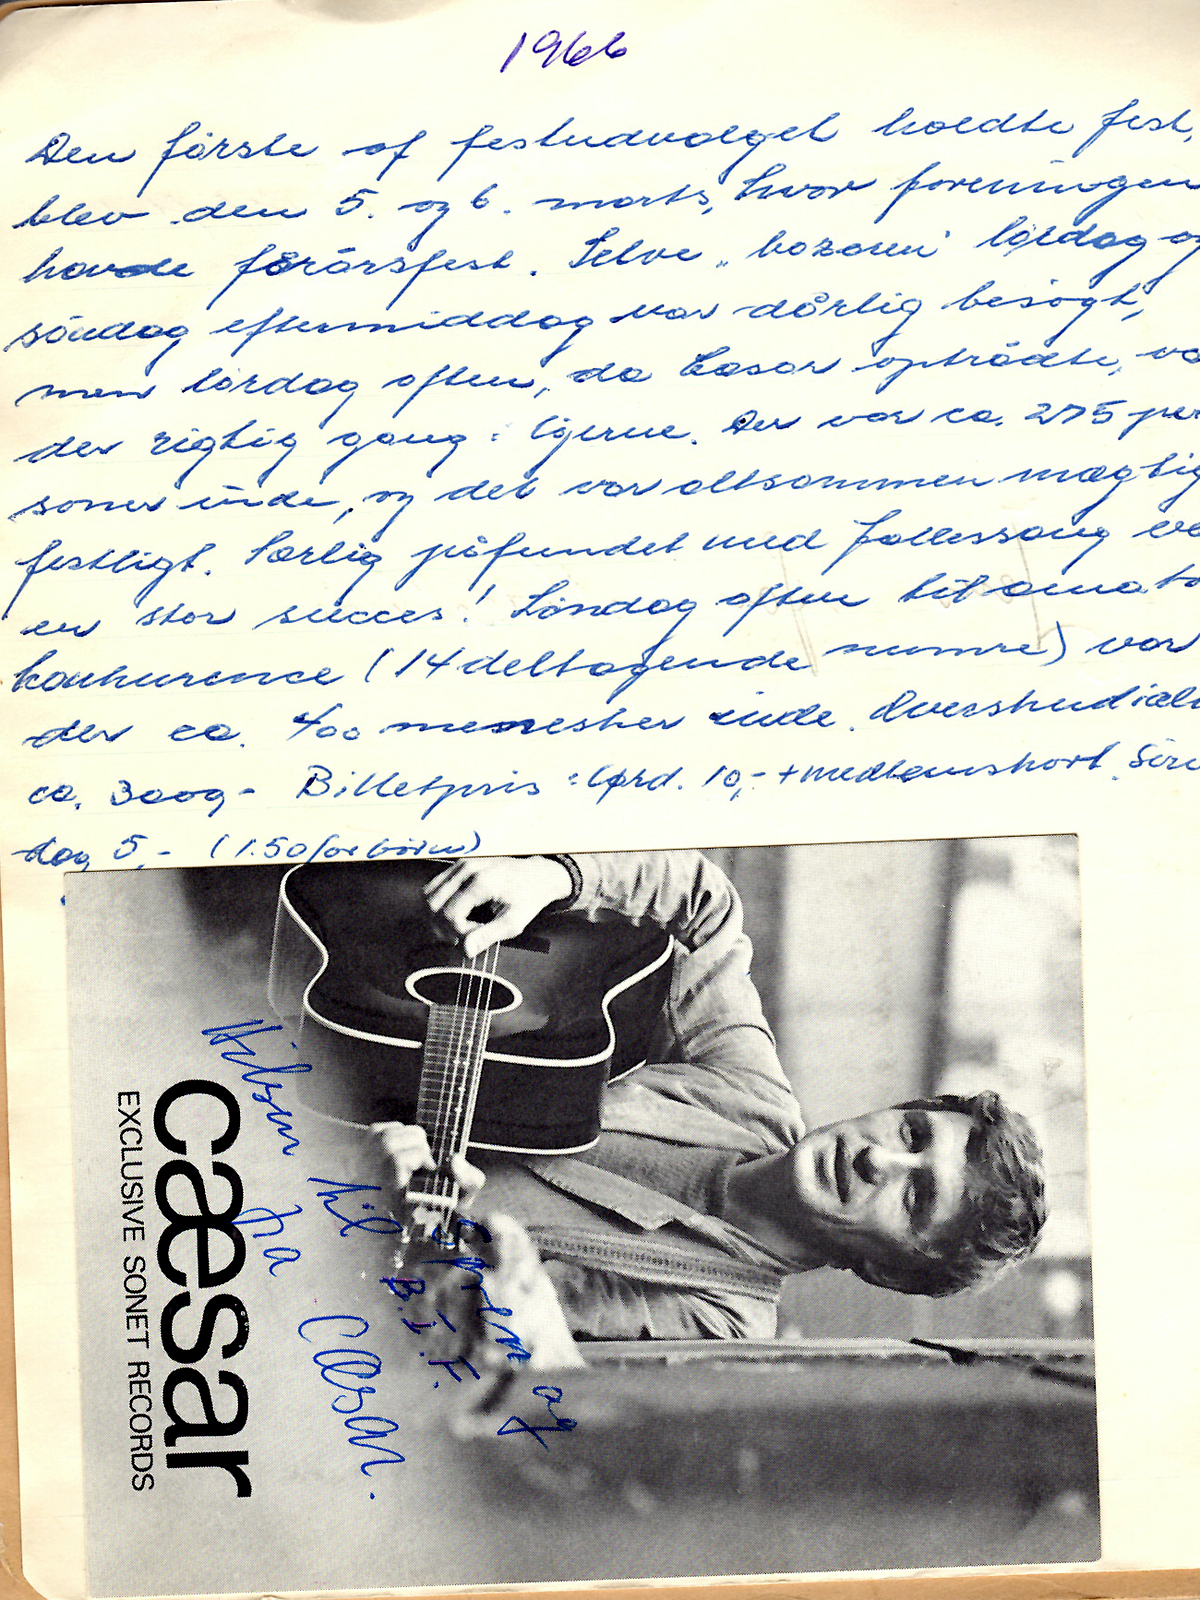 1966
Den første af festudvalget holdte fest,
blev den 5. og 6. marts, hvor foreningen
havde forårsfest. Selve "bazaren" lørdag og
søndag eftermiddag var dårlig besøgt,
men lørdag aften, da Cæsar optrådte, va
der rigtig gang i løjerne. Der var ca. 275 per
soner inde, og det var altsammen mægtig
festligt. Særlig påfundet med fællessang va
en stor succes! Søndag aften til amatør
konkurence (14 deltagende numre) var
der ca. 400 mennesker inde. Overskud ialt
ca. 3000,- Billetpris: Lørd. 10,- + medlemskort. Søn
dag 5,- (1.50 for børn)
Hilsen til og
B.I.F.
fra Cæsar.
cæsar
EXCLUSIVE SONET RECORDS